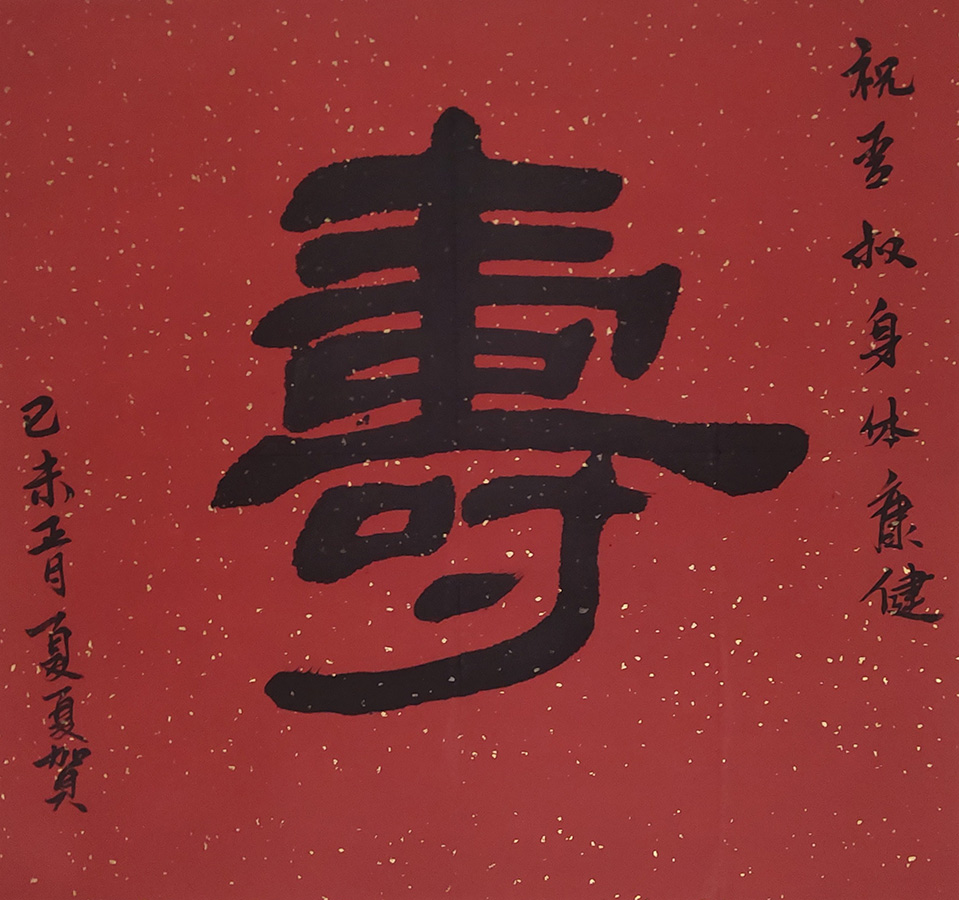 祝叔身体康健
壽
己未正月夏夏賀